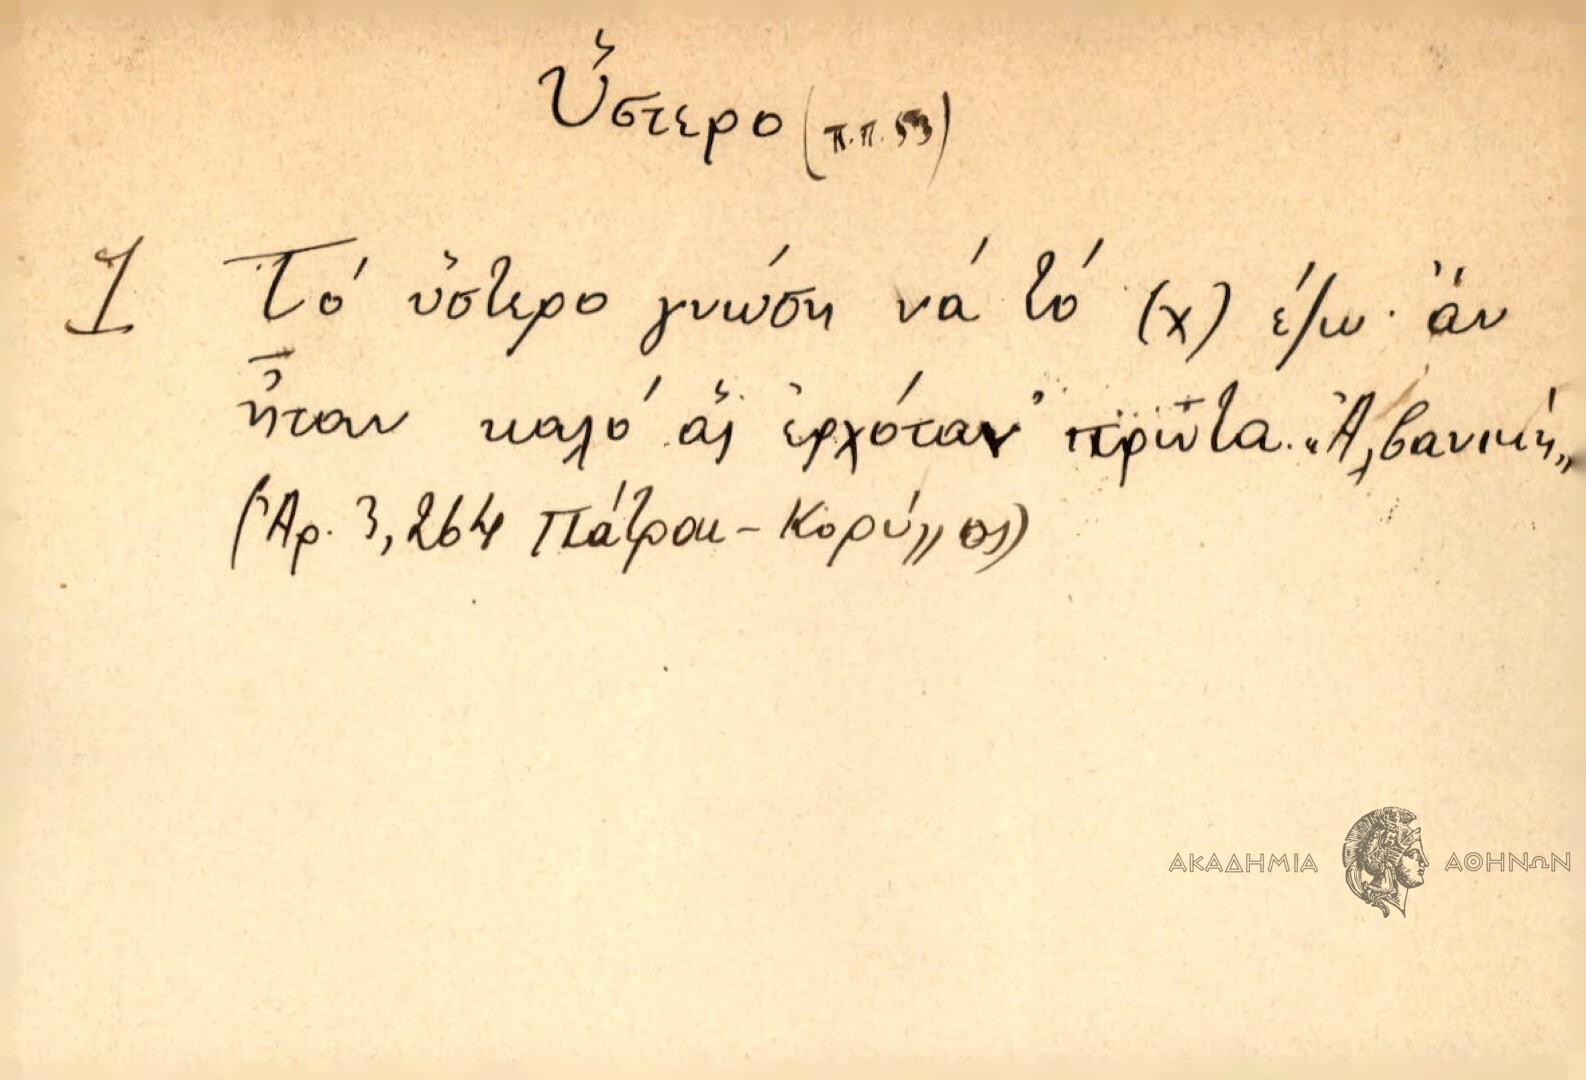 Ὕστερο (π.π. 53)
1 Τό ὕστερο γνώση νά τό (χ) έζω· ἄν
ἦταν καλό ἄς ἐρχόταν πρῶτα. "Ἀλβανική"
(Ἀρ. 3, 264 Πάτραι – Κορύλλος)
ΑΚΑΔΗΜΙΑ ΑΘΗΝΩΝ